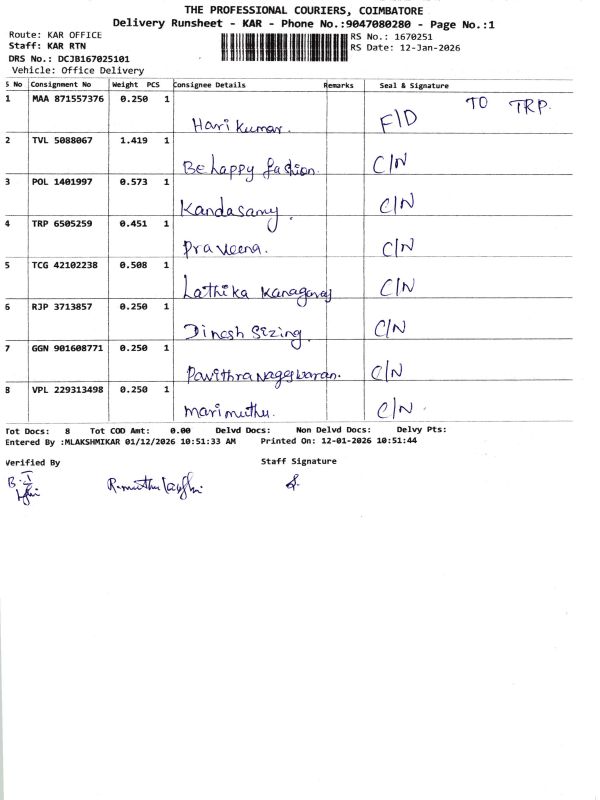 THE PROFESSIONAL COURIERS, COIMBATORE
Delivery Runsheet - KAR - Phone No.:9047080280 - Page No.:1
Route: KAR OFFICE
RS No.: 1670251
Staff: KAR RTN
RS Date: 12-Jan-2026
DRS No.: DCJB167025101
Vehicle: Office Delivery
S No Consignment No Weight PCS Consignee Details Remarks Seal & Signature
1 MAA 871557376 0.250 1 Hari Kumar. F/D TO TRP.
2 TVL 5088067 1.419 1 Be happy fashion. C/N
3 POL 1401997 0.573 1 Kandasamy. C/N
4 TRP 6505259 0.451 1 Praveena. C/N
5 TCG 42102238 0.508 1 Lathika Kanagaraj C/N
6 RJP 3713857 0.250 1 Dinesh Sizing. C/N
7 GGN 901608771 0.250 1 Pavithra Nageswaran. C/N
8 VPL 229313498 0.250 1 Marimuthu. C/N.
Tot Docs: 8 Tot COD Amt: 0.00 Delvd Docs: Non Delvd Docs: Delvy Pts:
Entered By :MLAKSHMIKAR 01/12/2026 10:51:33 AM Printed On: 12-01-2026 10:51:44
Verified By
Staff Signature